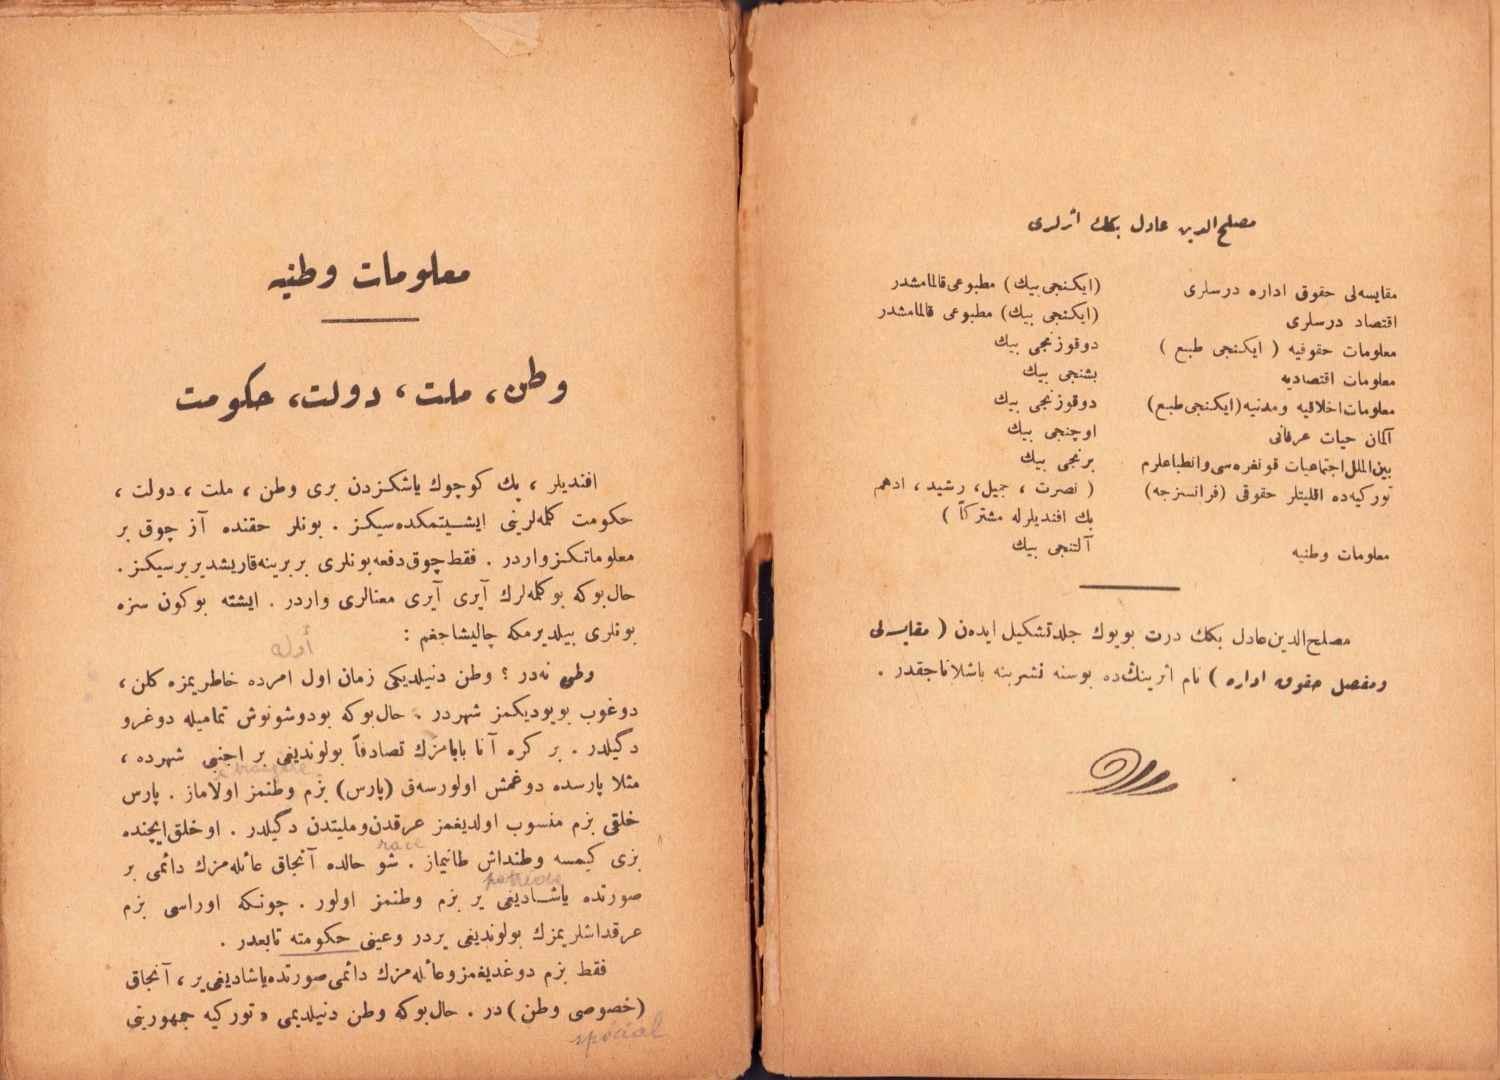 مصلح‌الدین عادل بكك اثرلری
مقایسه‌لی حقوق اداره درسلری (ایكنجی بیك) مطبوعی قالمامشدر
اقتصاد درسلری (ایكنجی بیك) مطبوعی قالمامشدر
معلومات حقوقیه ( ایكنجی طبع ) دوقوزنجی بیك
معلومات اقتصادیه بشنجی بیك
معلومات اخلاقیه ومدنیه (ایكنجی طبع) دوقوزنجی بیك
آلمان حیات عرفانی اوچنجی بیك
بین‌الملل اجتماعیات قونفره‌سی وانطباعلرم برنجی بیك
توركیه‌ده اقلیتلر حقوقی (فرانسزجه) ( نصرت ، جمیل، رشید ، ادهم
بك افندیلرله مشتركاً )
معلومات وطنیه آلتنجی بیك
مصلح‌الدین عادل بكك درت بویوك جلد تشكیل ایدن ( مقایسه‌لی
ومفصل حقوق اداره ) نام اثرینك ده بوسنه نشرینه باشلاناجقدر .
معلومات وطنیه
وطن ، ملت ، دولت ، حكومت
افندیلر ، پك كوچوك یاشكزدن بری وطن ، ملت ، دولت ،
حكومت كلمه‌لرینی ایشیتمكده‌سیكز . بونلر حقنده آز چوق بر
معلوماتكز واردر . فقط چوق دفعه بونلری بربرینه قاریشدیررسیكز .
حال‌بوكه بو كلمه‌لرك آیری آیری معنالری واردر . ایشته بوكون سزه
بونلری بیلدیرمكه چالیشاجغم :
أوله
وطن نه‌در ؟ وطن دنیلدیكی زمان اول امرده خاطریمزه كلن ،
دوغوب بویودیكمز شهردر . حال‌بوكه بودوشونوش تمامیله دوغرو
دگیلدر . بر كره آنا بابامزك تصادفاً بولوندیغی بر اجنبی شهرده ،
étrangère
مثلا پارسده دوغمش اولورسه‌ق (پارس) بزم وطنمز اولاماز . پارس
خلقی بزم منسوب اولدیغمز عرقدن وملیتدن دگیلدر . او خلق ایچنده
race
بزی كیمسه وطنداش طانیماز . شو حالده آنجاق عائله‌مزك دائمی بر
صورتده یاشادیغی یر بزم وطنمز اولور . چونكه اوراسی بزم
عرقداشلریمزك بولوندیغی یردر وعینی حكومته تابعدر .
فقط بزم دوغدیغمز وعائله‌مزك دائمی صورتده یاشادیغی یر ، آنجاق
(خصوصی وطن) در . حال‌بوكه وطن دنیلدیمی «توركیه جمهوریتی
spécial